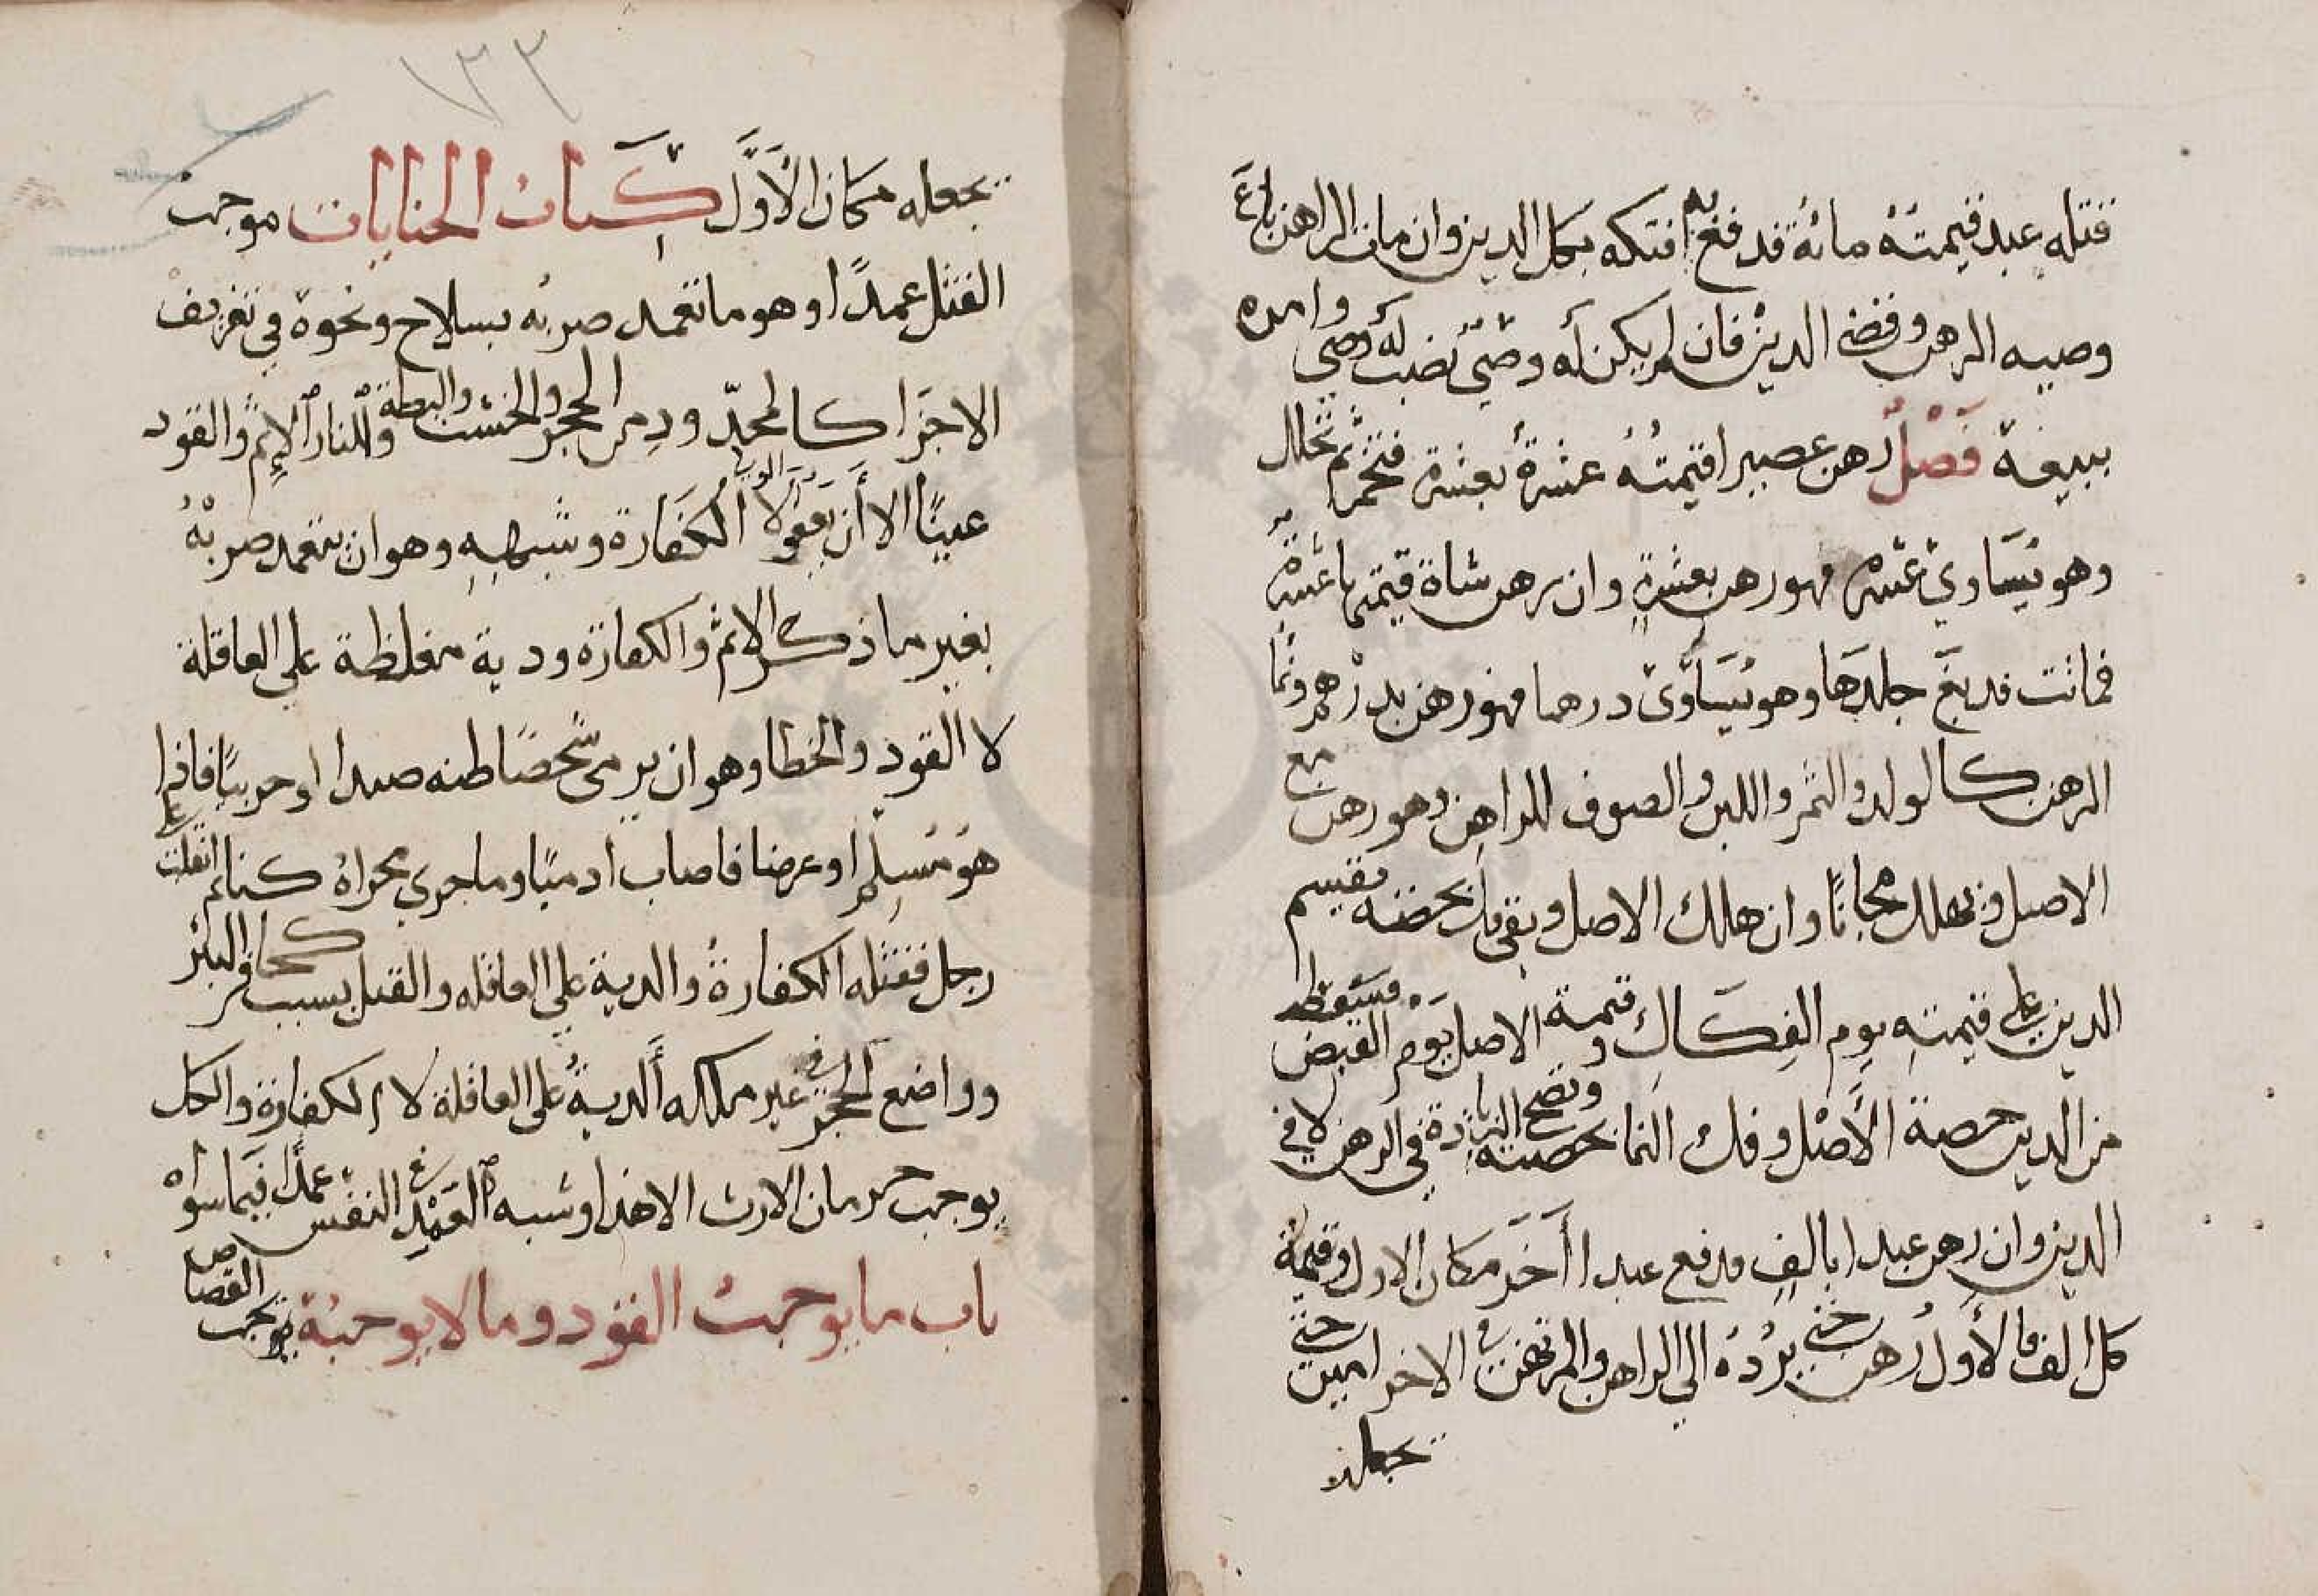 فقتله عبد قيمته مائة فدفع به افتكه بكل الدين وان مات الراهن باع
وصيه الرهن وقضى الدين فان لم يكن له وصي نصب له وصي وامره
ببيعه فصل رهن عصيرا قيمته عشرة بعشرة فتخمر ثم تخلل
وهو يساوي عشرة فهو رهن بعشرة وان رهن شاة قيمتها عشرة
فماتت فدبغ جلدها وهو يساوى درهما فهو رهن بدرهم ونما
الرهن كالولد والثمر واللبن والصوف للراهن وهو رهن مع
الاصل ويهلك مجانا وان هلك الاصل وبقي فك بحصته يقسم
الدين على قيمته يوم الفكاك وقيمة الاصل يوم القبض فسقط
من الدين حصة الأصل وفك النما بحصته وتصح الزيادة في الرهن لا في
الدين وان رهن عبدا بالف فدفع عبدا أخر مكان الاول وقيمة
كل الف فالأول رهن حتى يرده الي الراهن والمرتهن في الاخر امين حتى
يجعله
١٣٢
يجعله مكان الأول كتاب الجنايات موجب
القتل عمدا وهو ما تعمد ضربه بسلاح ونحوه في تفريق
الاجزا كالمحدد من الحجر والخشب والبطة والنار الاثم والقود
عينا الا أن يعفوا لا الكفارة وشبهه وهو ان يتعمد ضربه
بغير ما ذكر الاثم والكفارة ودية مغلظة على العاقلة
لا القود والخطا وهو ان يرمى شخصا ظنه صيدا او حربيا فاذا
هو مسلم او غرضا فاصاب ادميا وما جري مجراه كنائم انقلب على
رجل فقتله الكفارة والدية علي العاقله والقتل بسبب كحافر البئر
وواضع الحجر في غير ملكه ألدية على العاقلة لا الكفارة والكل
يوجب حرمان الارث الا هذا وشبه العمد في النفس عمد فيما سواه
باب ما يوجب القود وما لا يوجبه يجب القصاص